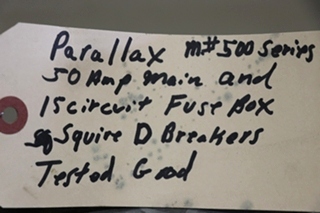 Parallax m#500 Series
50 Amp Main and
15 circuit Fuse Box
Sq Squire D Breakers
Tested Good